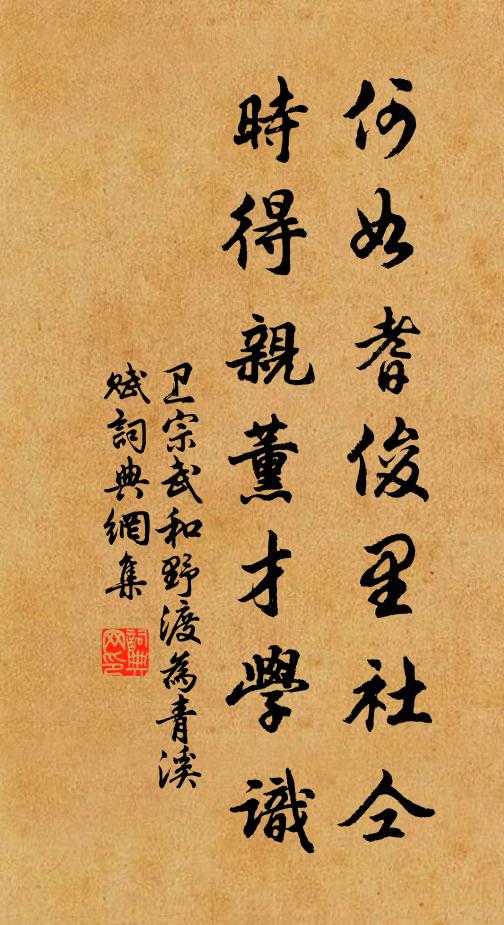 何如耆俊里社仝
時得親薰才學識
卫宗武和野渡為青溪
賦詞典網集
詞典
网印